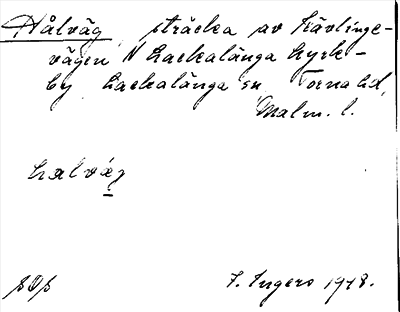 Hålväg sträcka av Kävlinge-
vägen N Lackalänga kyrk-
by Lackalänga sn Torna hd,
Malm. l.
halväg
I. Ingers 1978.